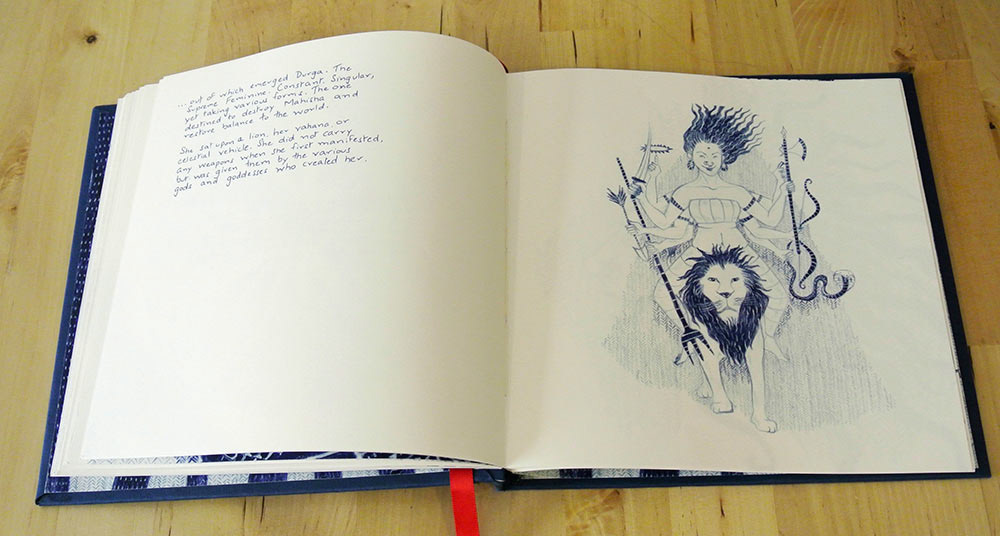 ...out of which emerged Durga. The
Supreme Feminine. Constant. Singular,
yet taking various forms. The one
destined to destroy Mahisha and
restore balance to the world.
She sat upon a lion, her vahana or
celestial vehicle. She did not carry
any weapons when she first manifested,
but was given them by the various
gods and goddesses who created her.